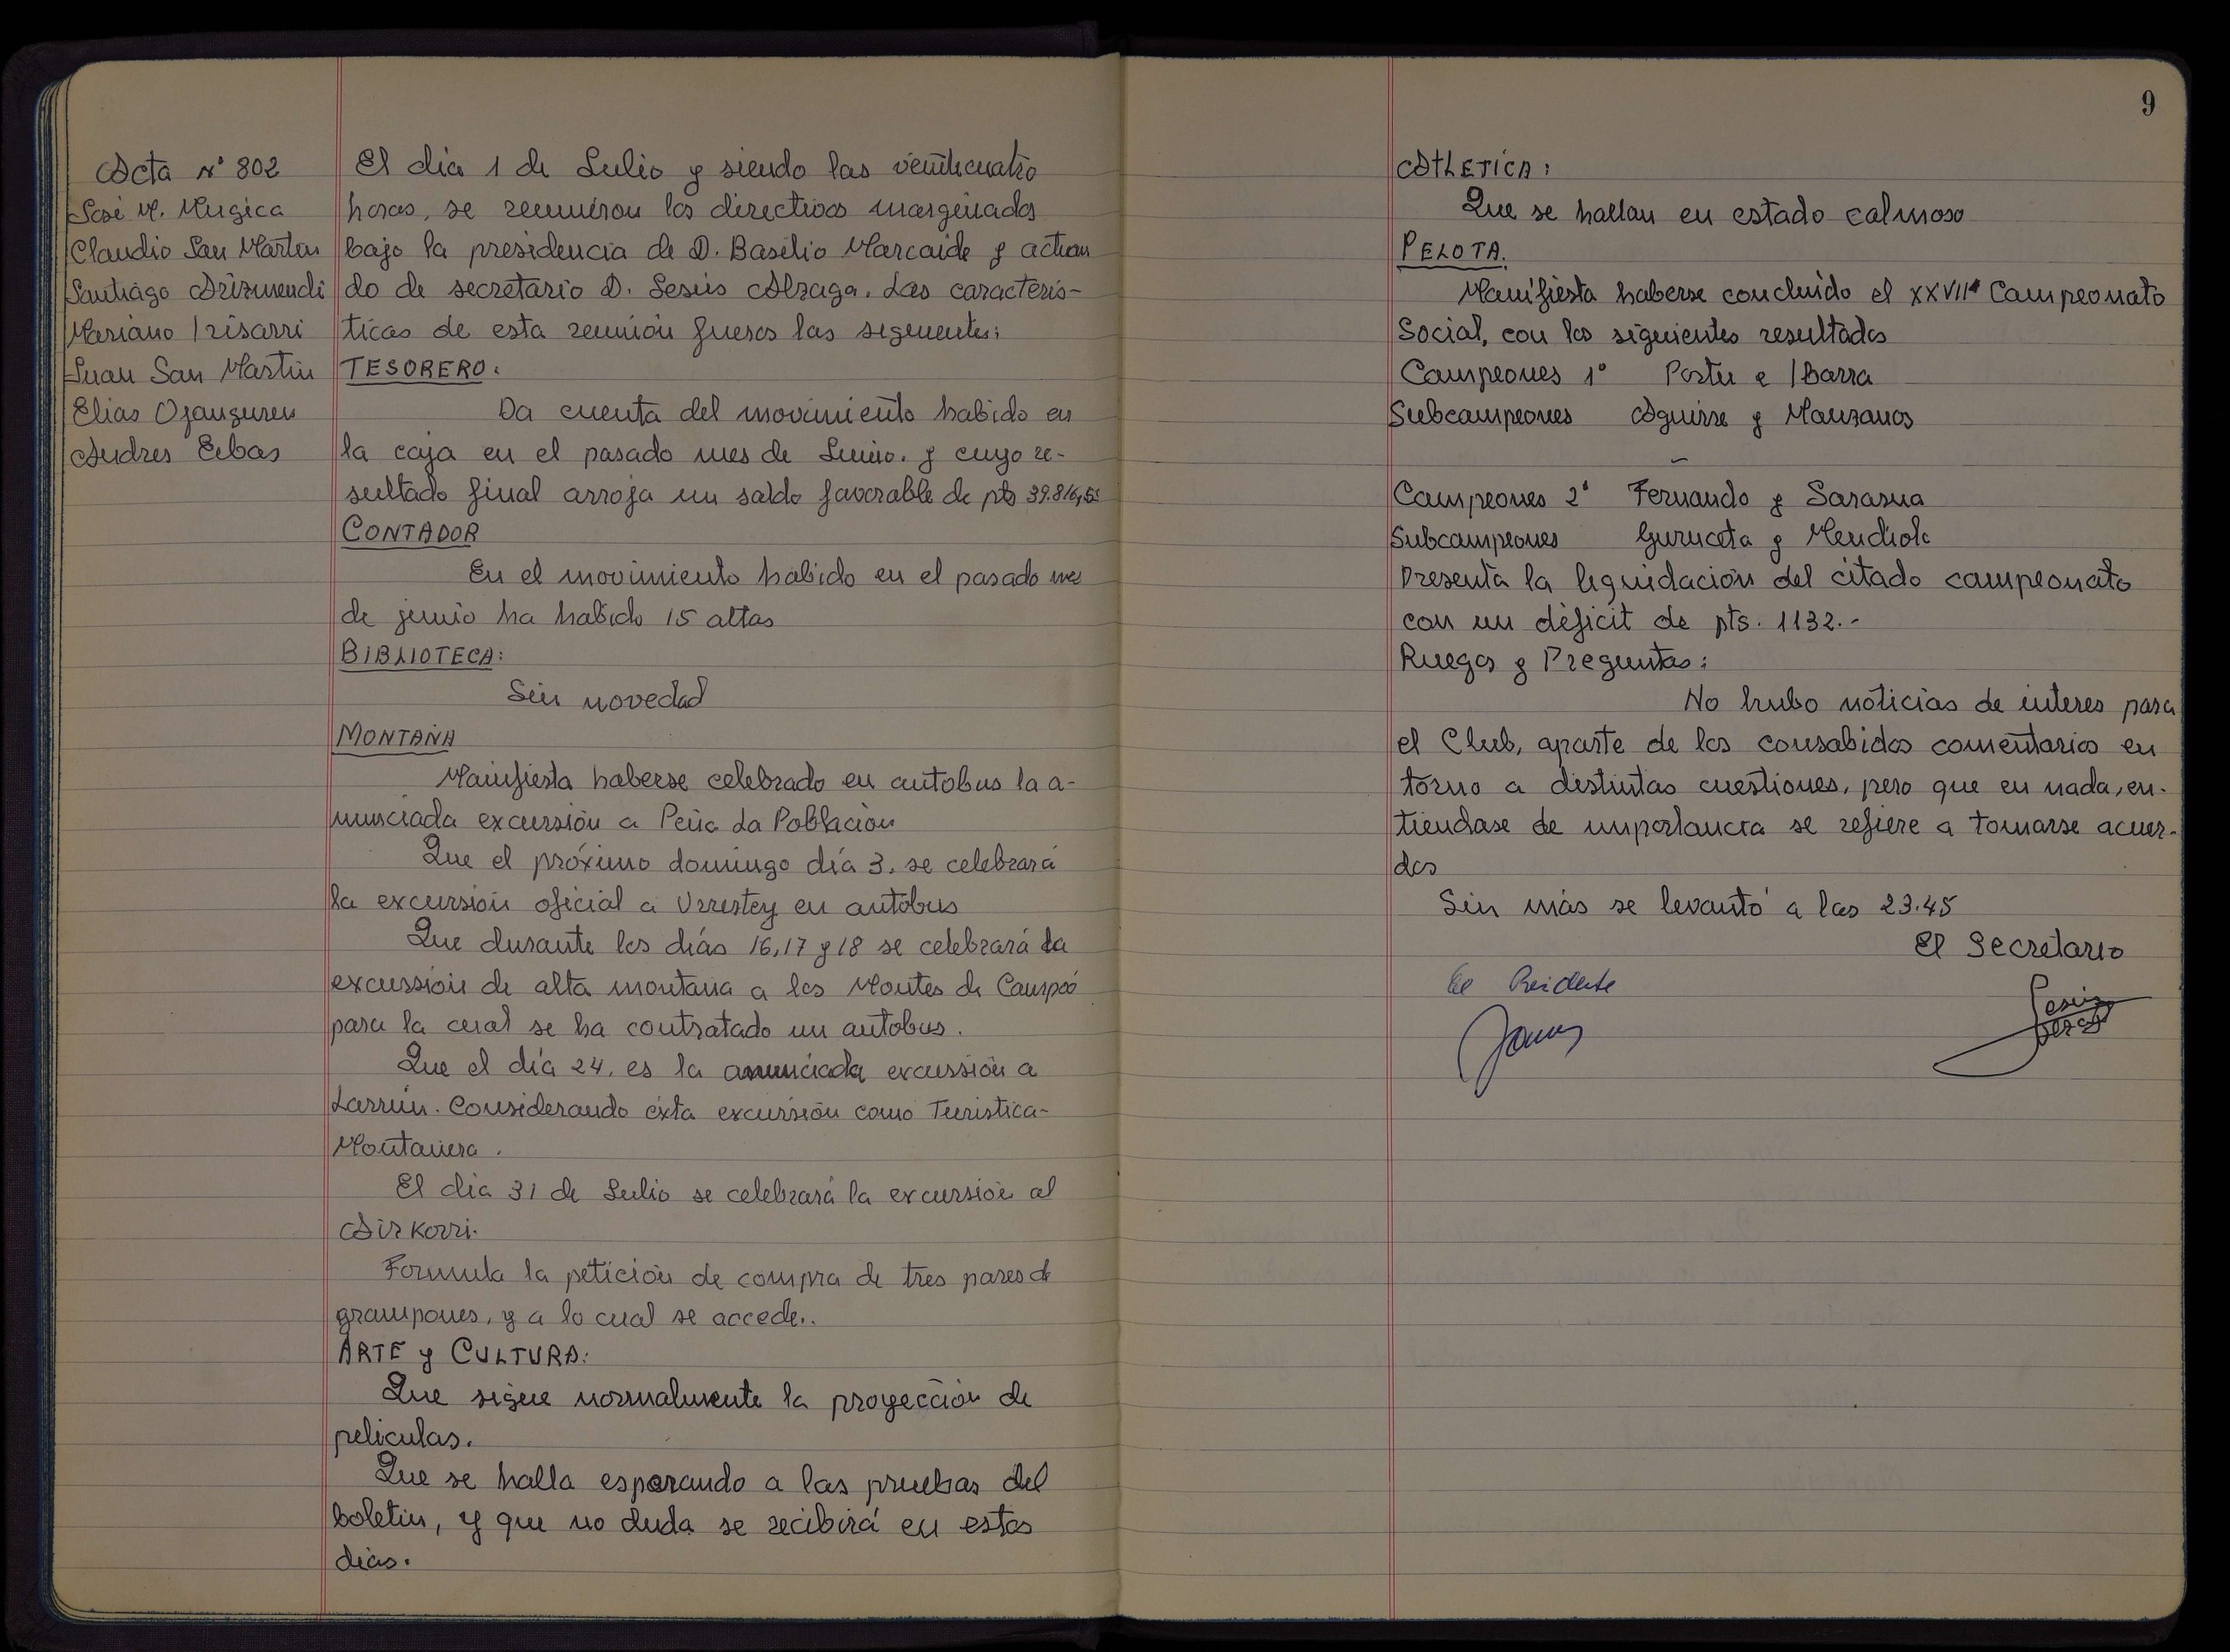 Acta Nº 802
José M. Mugica
Claudio San Martin
Santiago Arizmendi
Mariano Irisarri
Juan San Martin
Elias Ojanguren
Andres Eibas
El dia 1 de Julio y siendo las veinticuatro
horas, se reunieron los directivos marginados
bajo la presidencia de D. Basilio Marcaide y actuan
do de secretario D. Jesús Alzaga. Las caracterís-
ticas de esta reunión fueros las siguientes:
TESORERO:
Da cuenta del movimiento habido en
la caja en el pasado mes de Junio. y cuyo re-
sultado final arroja un saldo favorable de pts 39.816,5
CONTADOR
En el movimiento habido en el pasado mes
de junio ha habido 15 altas
BIBLIOTECA:
Sin novedad
MONTAÑA
Manifiesta haberse celebrado en autobus la a-
nunciada excursión a Peña La Población
Que el próximo domingo día 3. se celebrará
la excursión oficial a Urrestey en autobus
Que durante los días 16,17 y 18 se celebrará la
excussión de alta montaña a los Montes de Campóo
para la cual se ha contratado un autobus.
Que el día 24, es la anunciada excussión a
Larrún. Considerando ésta excursión como Turistica-
Montañera.
El dia 31 de Julio se celebrará la excursión al
Airkorri.
Formula la petición de compra de tres pares de
grampones, y a lo cual se accede..
ARTE y CULTURA:
Que sigue normalmente la proyección de
peliculas.
Que se halla esperando a las pruebas del
boletin, y que no duda se recibirá en estos
dias.
9
ATHLETICA:
Que se hallan en estado calmoso
PELOTA.
Manifiesta haberse concluido el XXVIIº Campeonato
Social, con los siguientes resultados
Campeones 1º Poster e Ibarra
Subcampeones Aguirre y Manzanos
Campeones 2º Fernando y Sarasua
Subcampeones Guruceta y Mendiola
Presenta la liquidación del citado campeonato
con un déficit de pts. 1132.-
Ruegos y Preguntas:
No hubo noticias de interes para
el Club, aparte de los consabidos comentarios en
torno a distintas cuestiones, pero que en nada, en-
tiendase de importancia se refiere a tomarse acuer-
dos
Sin más se levantó a las 23.45
El Secretario
El Presidente